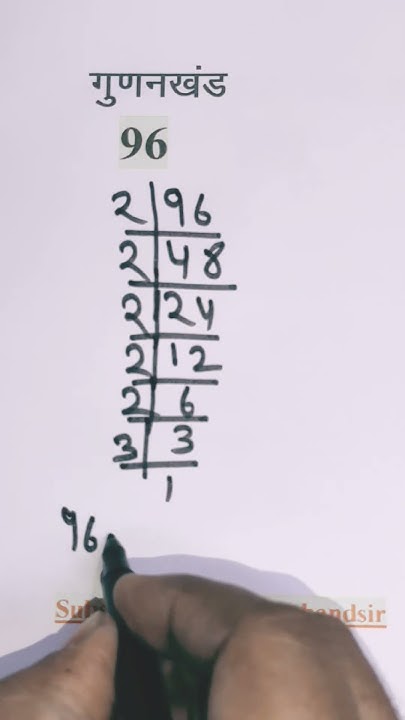 गुणनखंड
96
2 96
2 48
2 24
2 12
2 6
3 3
1
96